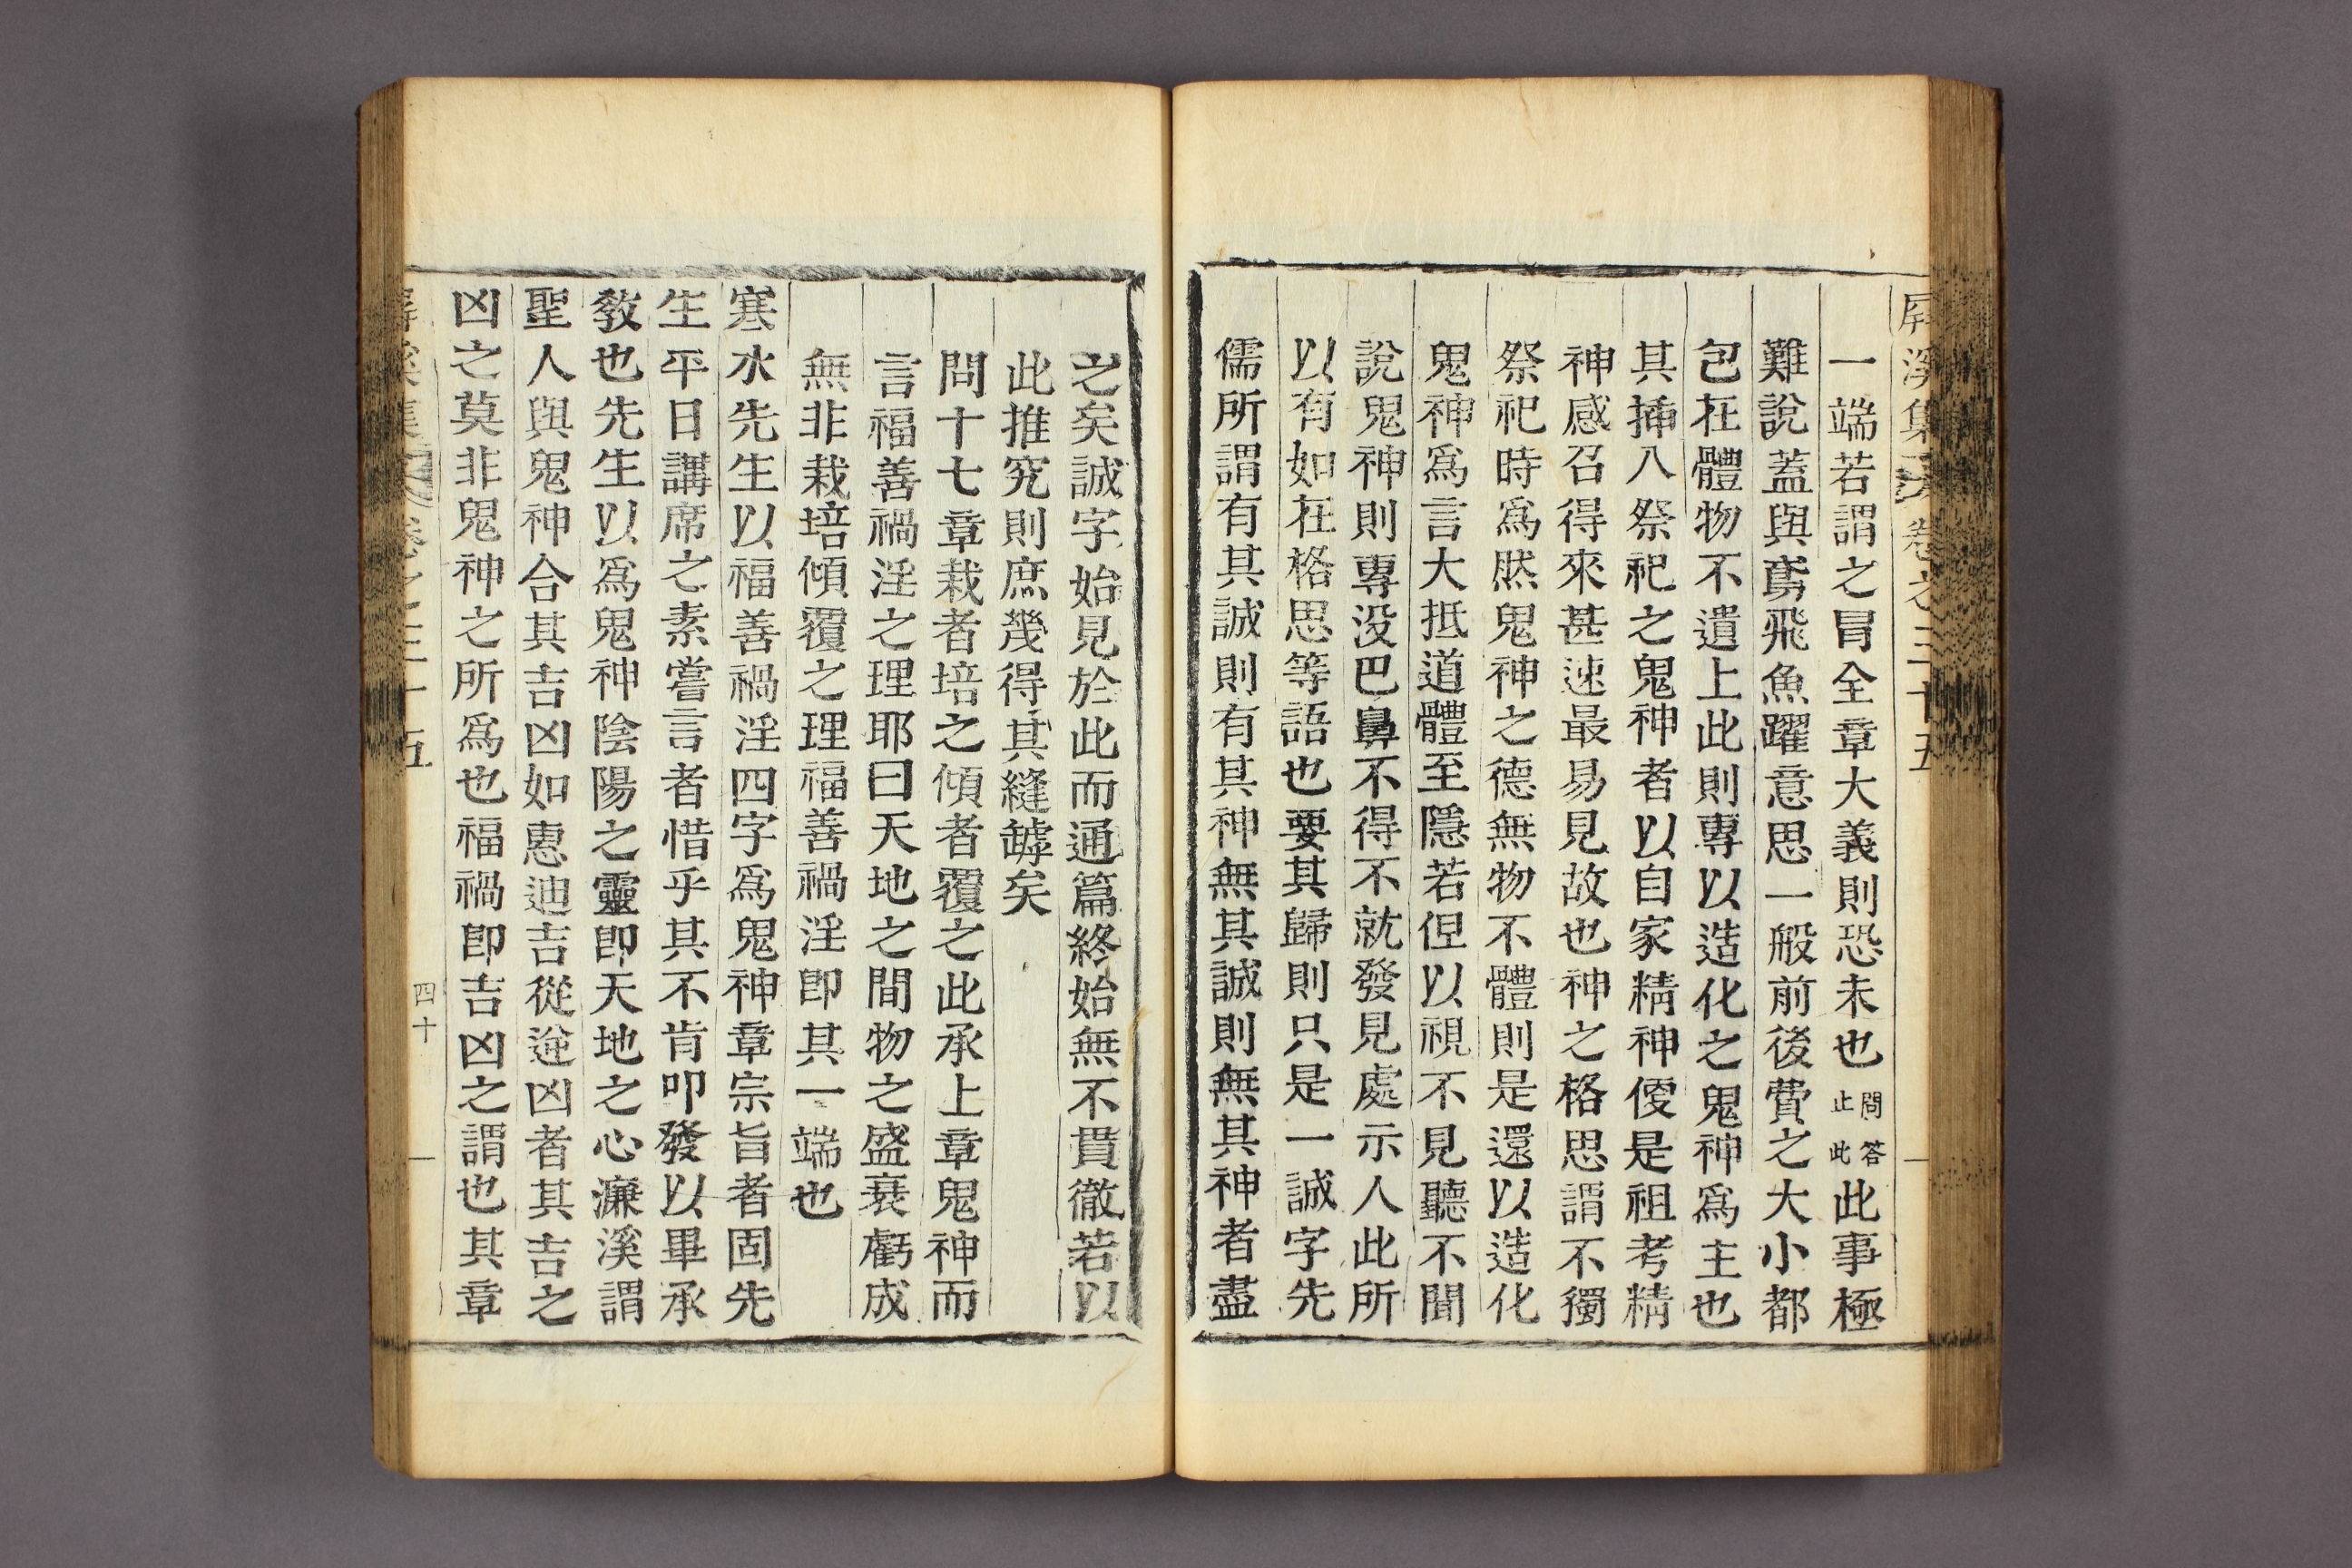 屛溪集 卷之三十五
一端若謂之冐全章大義則恐未也問答止此此事極
難說蓋與鳶飛魚躍意思一般前後費之大小都
包在體物不遺上此則專以造化之鬼神爲主也
其揷入祭祀之鬼神者以自家精神便是祖考精
神感召得來甚速最易見故也神之格思謂不獨
祭祀時爲然鬼神之德無物不體則是還以造化
鬼神爲言大抵道體至隱若但以視不見聽不聞
說鬼神則專没巴鼻不得不就發見處示人此所
以有如在格思等語也要其歸則只是一誠字先
儒所謂有其誠則有其神無其誠則無其神者盡
之矣誠字始見於此而通篇終始無不貫徹若以
此推究則庶幾得其縫罅矣
問十七章栽者培之傾者覆之此承上章鬼神而
言福善禍淫之理耶曰天地之間物之盛衰虧成
無非栽培傾覆之理福善禍淫卽其一端也
寒水先生以福善禍淫四字爲鬼神章宗旨者固先
生平日講席之素嘗言者惜乎其不肯叩發以畢承
敎也先生以爲鬼神陰陽之靈卽天地之心濂溪謂
聖人與鬼神合其吉凶如惠迪吉從逆凶者其吉之
凶之莫非鬼神之所爲也福禍卽吉凶之謂也其章
屛溪集 卷之三十五 四十